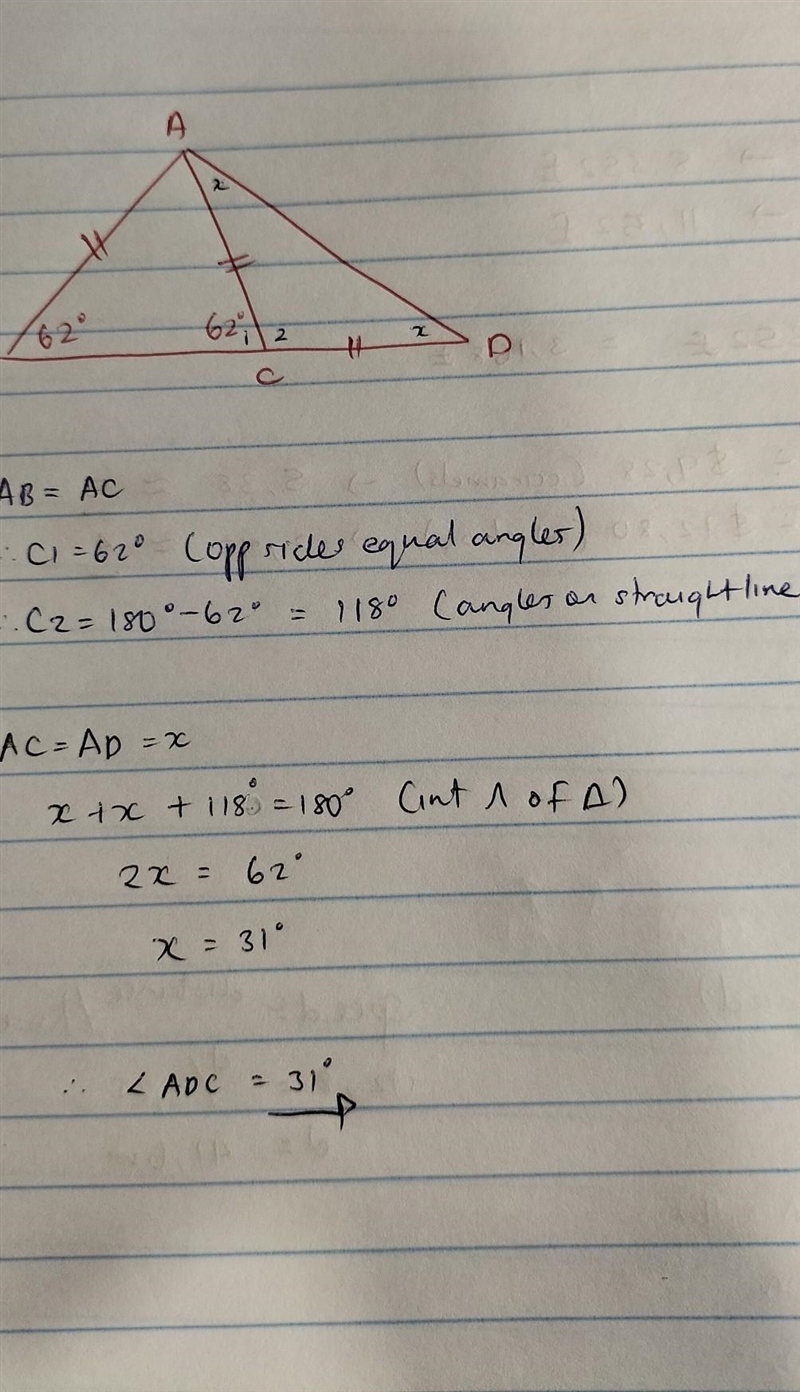 A
x
62°
62°
1
2
x
D
C
AB = AC
∴ C1 = 62° (opp sides equal angles)
∴ C2 = 180° - 62° = 118° (angles on straight line
AC = AD = x
x + x + 118° = 180° (int Λ of Δ)
2x = 62°
x = 31°
∴ ∠ ADC = 31°